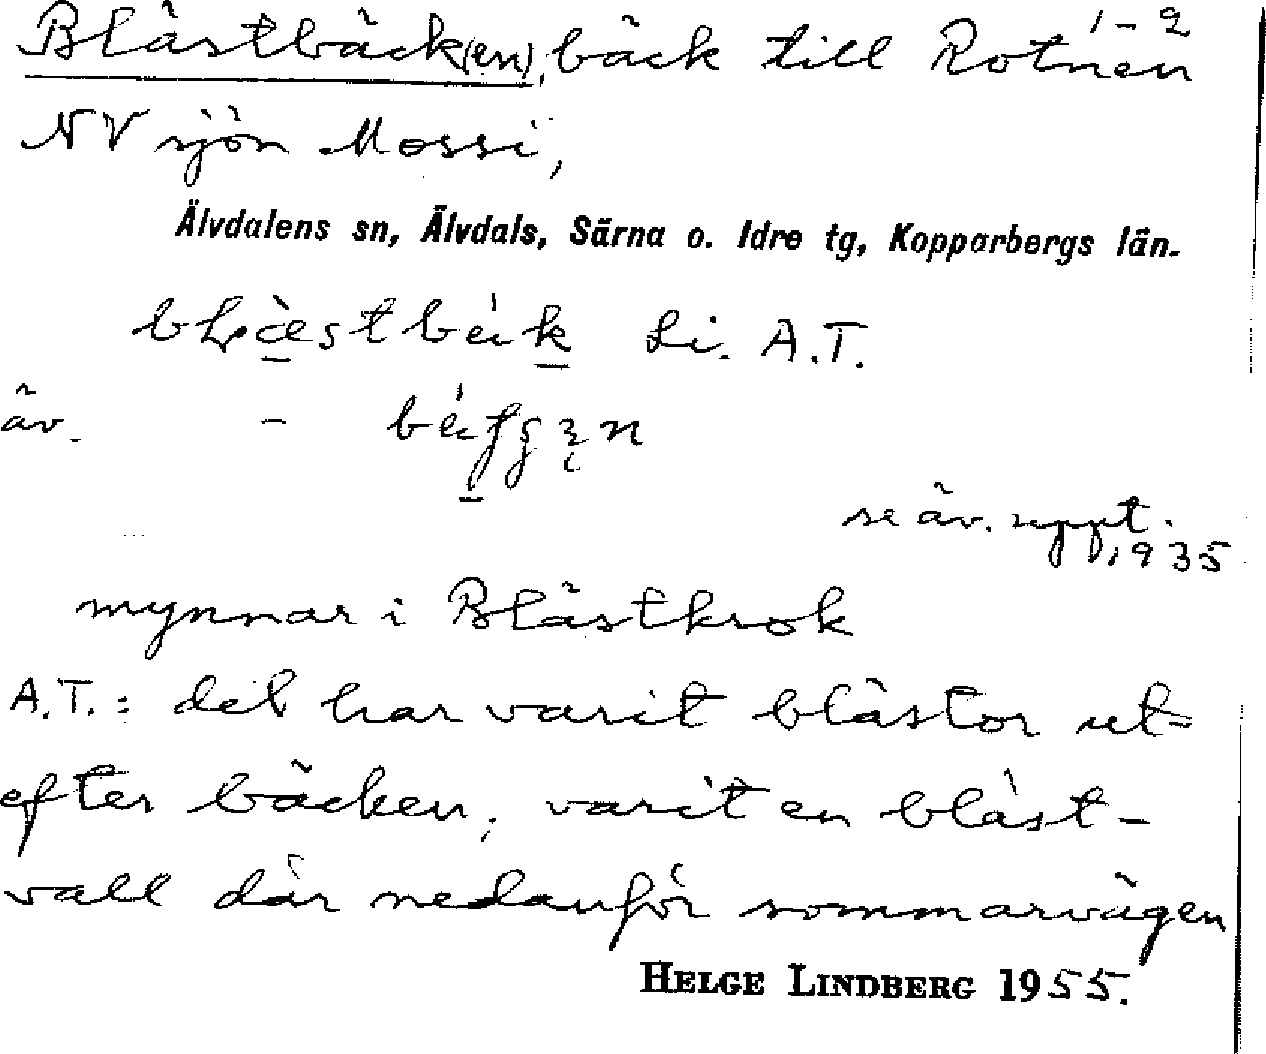 Blästbäck(en), bäck till Rotnen 1-2
NV sjön Mossi,
Älvdalens sn, Älvdals, Särna o. Idre tg, Kopparbergs län.
Li. A.T.
äv. -
se äv. uppt.
1935
mynnar i Blästkrok
A.T.: det har varit blästor ut=
efter bäcken, varit en bläst-
vall där nedanför sommarvägen
HELGE LINDBERG 1955.